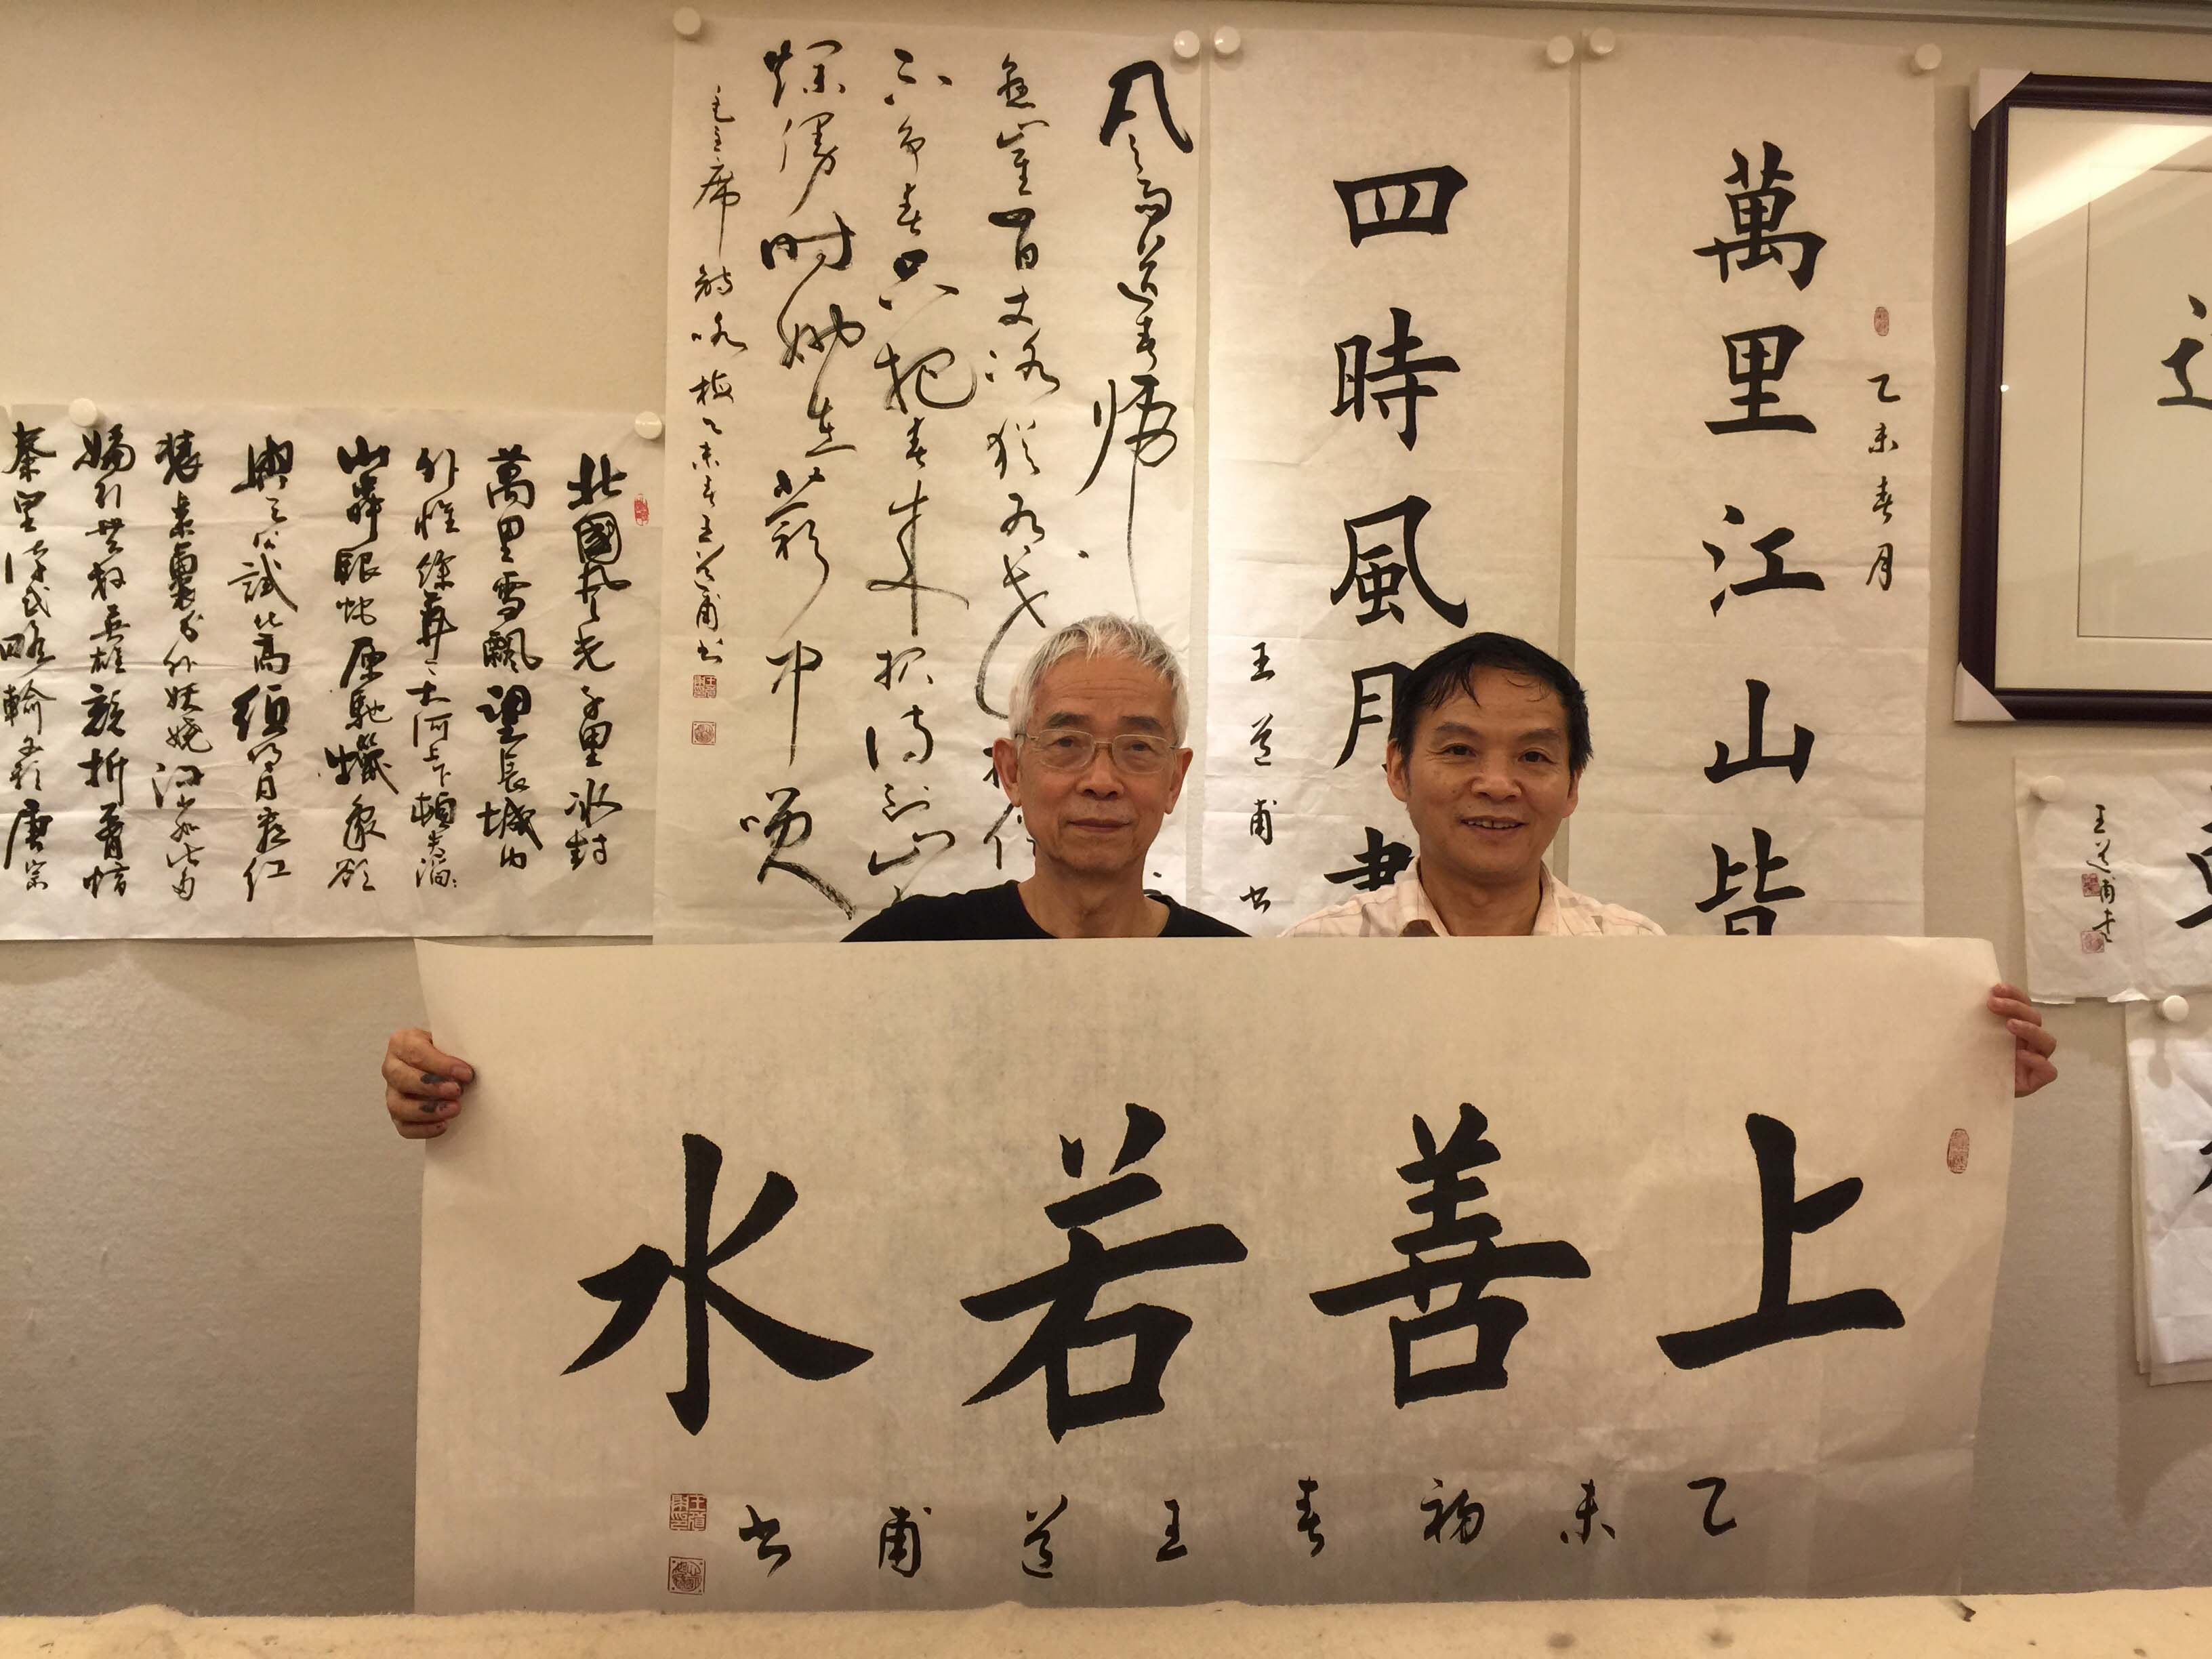 乙未春月
萬里江山皆
四時風月
王道甫书
风雨送春归
悬崖百丈冰犹有花枝俏
不争春只把春来报待到山
烂漫时她在丛中笑
毛主席词咏梅乙未春王道甫书
北國风光千里冰封
萬里雪飄望長城内
外惟餘莽々大河上下頓失滔:
山舞銀蛇原馳蠟象欲
與天公試比高須晴日看红
裝素裹分外妖娆江山如此多
嬌引無数英雄競折腰惜
秦皇漢武略輸文采唐宗
王道甫书
上善若水
乙未初春王道甫书